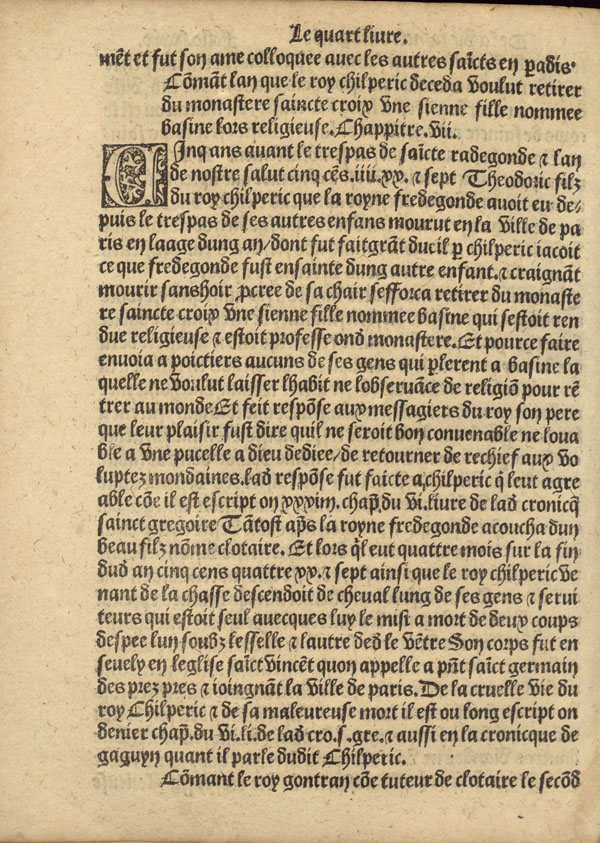 Le quart liure.
mẽt et fut son ame colloquee auec les autres saĩcts en ꝑadis.
Cõmãt lan que le roy chilperic deceda voulut retirer
du monastere saincte croix vne sienne fille nommee
basine lors religieuse. Chappitre. vii.
CInq ans auant le trespas de saĩcte radegonde ⁊ lan
de nostre salut cinq cẽs. iiii. xx. ⁊ sept Theodoric filz
du roy chilperic que la royne fredegonde auoit eu de-
puis le trespas de ses autres enfans mourut en la ville de pa
ris en laage dung an/dont fut fait grãt dueil ꝑ chilperic iacoit
ce que fredegonde fust ensainte dung autre enfant. ⁊ craignãt
mourir sans hoir ꝓcree de sa chair sefforca retirer du monaste
re saincte croix vne sienne fille nommee basine qui sestoit ren
due religieuse ⁊ estoit professe ond monastere. Et pource faire
enuoia a poictiers aucuns de ses gens qui ꝑlerent a basine la
quelle ne voulut laisser lhabit ne lobseruãce de religiõ pour rẽ
trer au monde Et feit respõse aux messagiers du roy son pere
que leur plaisir fust dire quil ne seroit bon conuenable ne loua
ble a vne pucelle a dieu dediee/de retourner de rechief aux vo
luptez mondaines. lad respõse fut faicte a chilperic q̃ leut agre
able cõe il est escript on xxxiiii. chap̃. du vi. liure de lad cronicq̃
sainct gregoire Tãtost ap̃s la royne fredegonde acoucha dun
beau filz nõme clotaire. Et lors q̃l eut quattre mois sur la fin
dud an cinq cens quattre xx. ⁊ sept ainsi que le roy chilperic ve
nant de la chasse descendoit de cheual lung de ses gens ⁊ serui
teurs qui estoit seul auecques luy le mist a mort de deux coups
despee lun soubz lesselle ⁊ lautre ded le vẽtre Son corps fut en
seuely en leglise saĩct vincẽt quon appelle a pñt saĩct germain
des prez pres ⁊ ioingnãt la ville de paris. De la cruelle vie du
roy Chilperic ⁊ de sa maleureuse mort il est ou long escript on
denier chap̃. du vi. li. de lad cro. s. gre. ⁊ aussi en la cronicque de
gaguyn quant il parle dudit Chilperic.
Cõmant le roy gontran cõe tuteur de clotaire le secõd